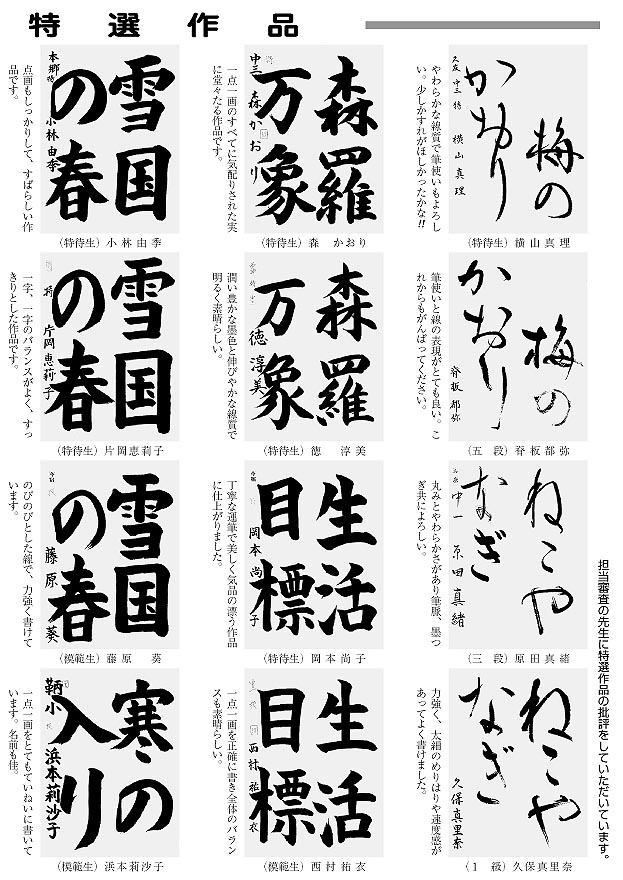 特選作品
担当審査の先生に特選作品の批評をしていただいています。
梅の
かおり
横山真理
やわらかな線質で筆使いもよろし
い。少しかすれがほしかったかな!!
(特待生)横山真理
森羅
万象
中三 森かおり
一点一画のすべてに気配りされた実
に堂々たる作品です。
(特待生)森 かおり
雪国
の春
本郷
小林由季
点画もしっかりして、すばらしい作
品です。
(特待生)小林由季
梅の
かおり
脊板都弥
筆使いと線の表現がとても良い。こ
れからもがんばってください。
(五 段)脊板都弥
森羅
万象
徳淳美
潤い豊かな墨色と伸びやかな線質で
明るく素晴らしい。
(特待生)徳 淳美
雪国
の春
特 片岡恵莉子
一字、一字のバランスがよく、すっ
きりとした作品です。
(特待生)片岡恵莉子
ねこや
なぎ
中一 原田真緒
丸みとやわらかさがあり筆脈、墨つ
ぎ共によろしい。
(三 段)原田真緒
生活
目標
岡本尚子
丁寧な運筆で美しく気品の漂う作品
に仕上がりました。
(特待生)岡本尚子
雪国
の春
藤原葵
のびのびとした線で、力強く書けて
います。
(模範生)藤原 葵
ねこや
なぎ
久保真里奈
力強く、太細のめりはりや速度感が
あってよく書けました。
(1 級)久保真里奈
生活
目標
西村祐衣
一点一画を正確に書き全体のバラン
スも素晴らしい。
(模範生)西村祐衣
寒の
入り
鞆小 浜本莉沙子
一点一画をとてもていねいに書いて
います。名前も佳。
(模範生)浜本莉沙子